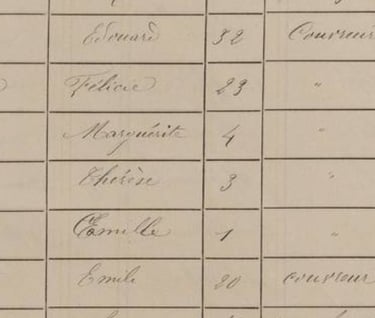 Edouard 32 Couvreur
Félicie 23 "
Marguérite 4 "
Thérèse 3 "
Camille 1 "
Emile 20 couvreur